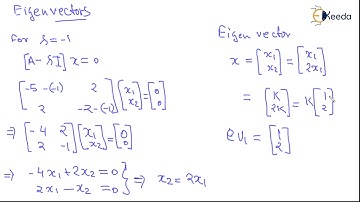 Eigenvectors
For λ=-1
[A-λI] x = 0
[-5-(-1) 2
2 -2-(-1)] [x₁
x₂] = [0
0]
⇒ [-4 2
2 -1] [x₁
x₂] = [0
0]
⇒ -4x₁+2x₂ = 0
2x₁-x₂ = 0} ⇒ x₂ = 2x₁
Ekeeda
Eigen vector
x = [x₁
x₂] = [x₁
2x₁]
= [K
2K] = K[1
2]
ev₁ = [1
2]